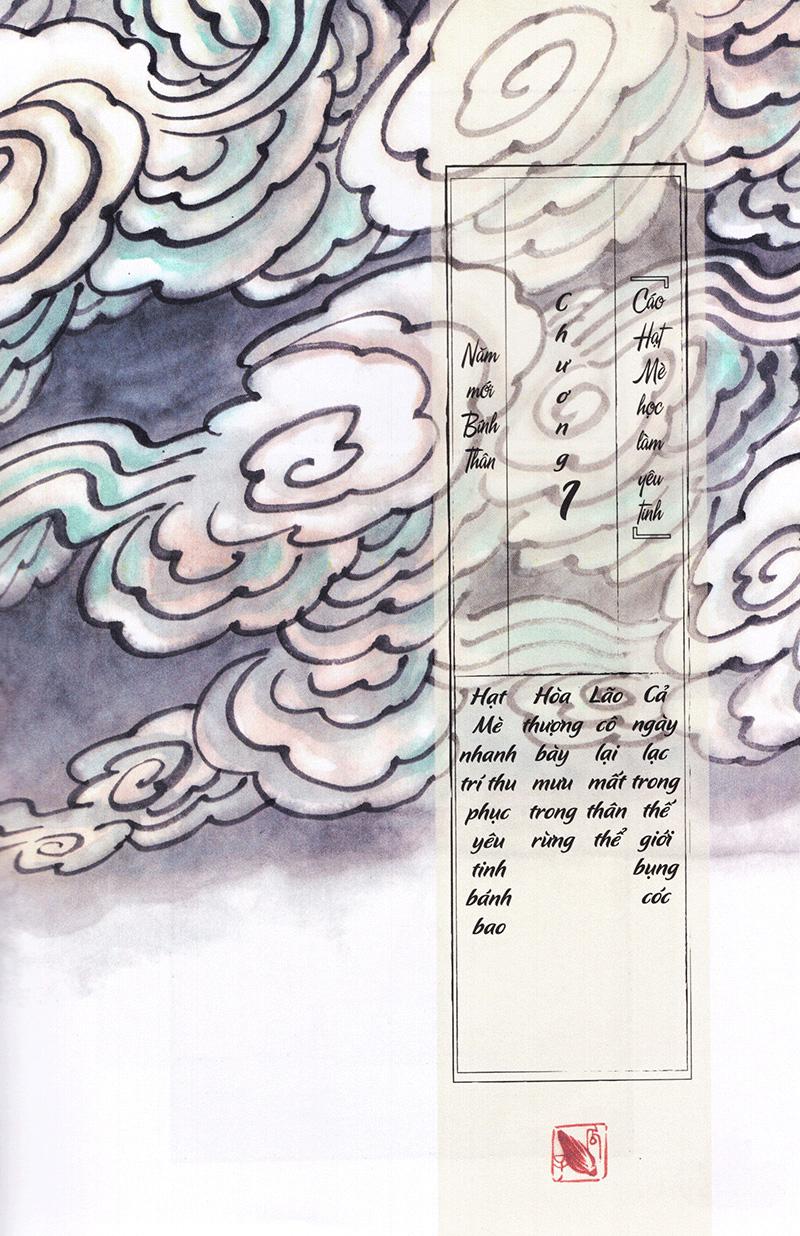 Cáo Hạt Mè học làm yêu tinh
Chương 1
Năm mới Bính Thân
Cả ngày lạc trong thế giới bụng cóc
Lão cô lại mất thân thể
Hòa thượng bày mưu trong rừng
Hạt Mè nhanh trí thu phục yêu tinh bánh bao